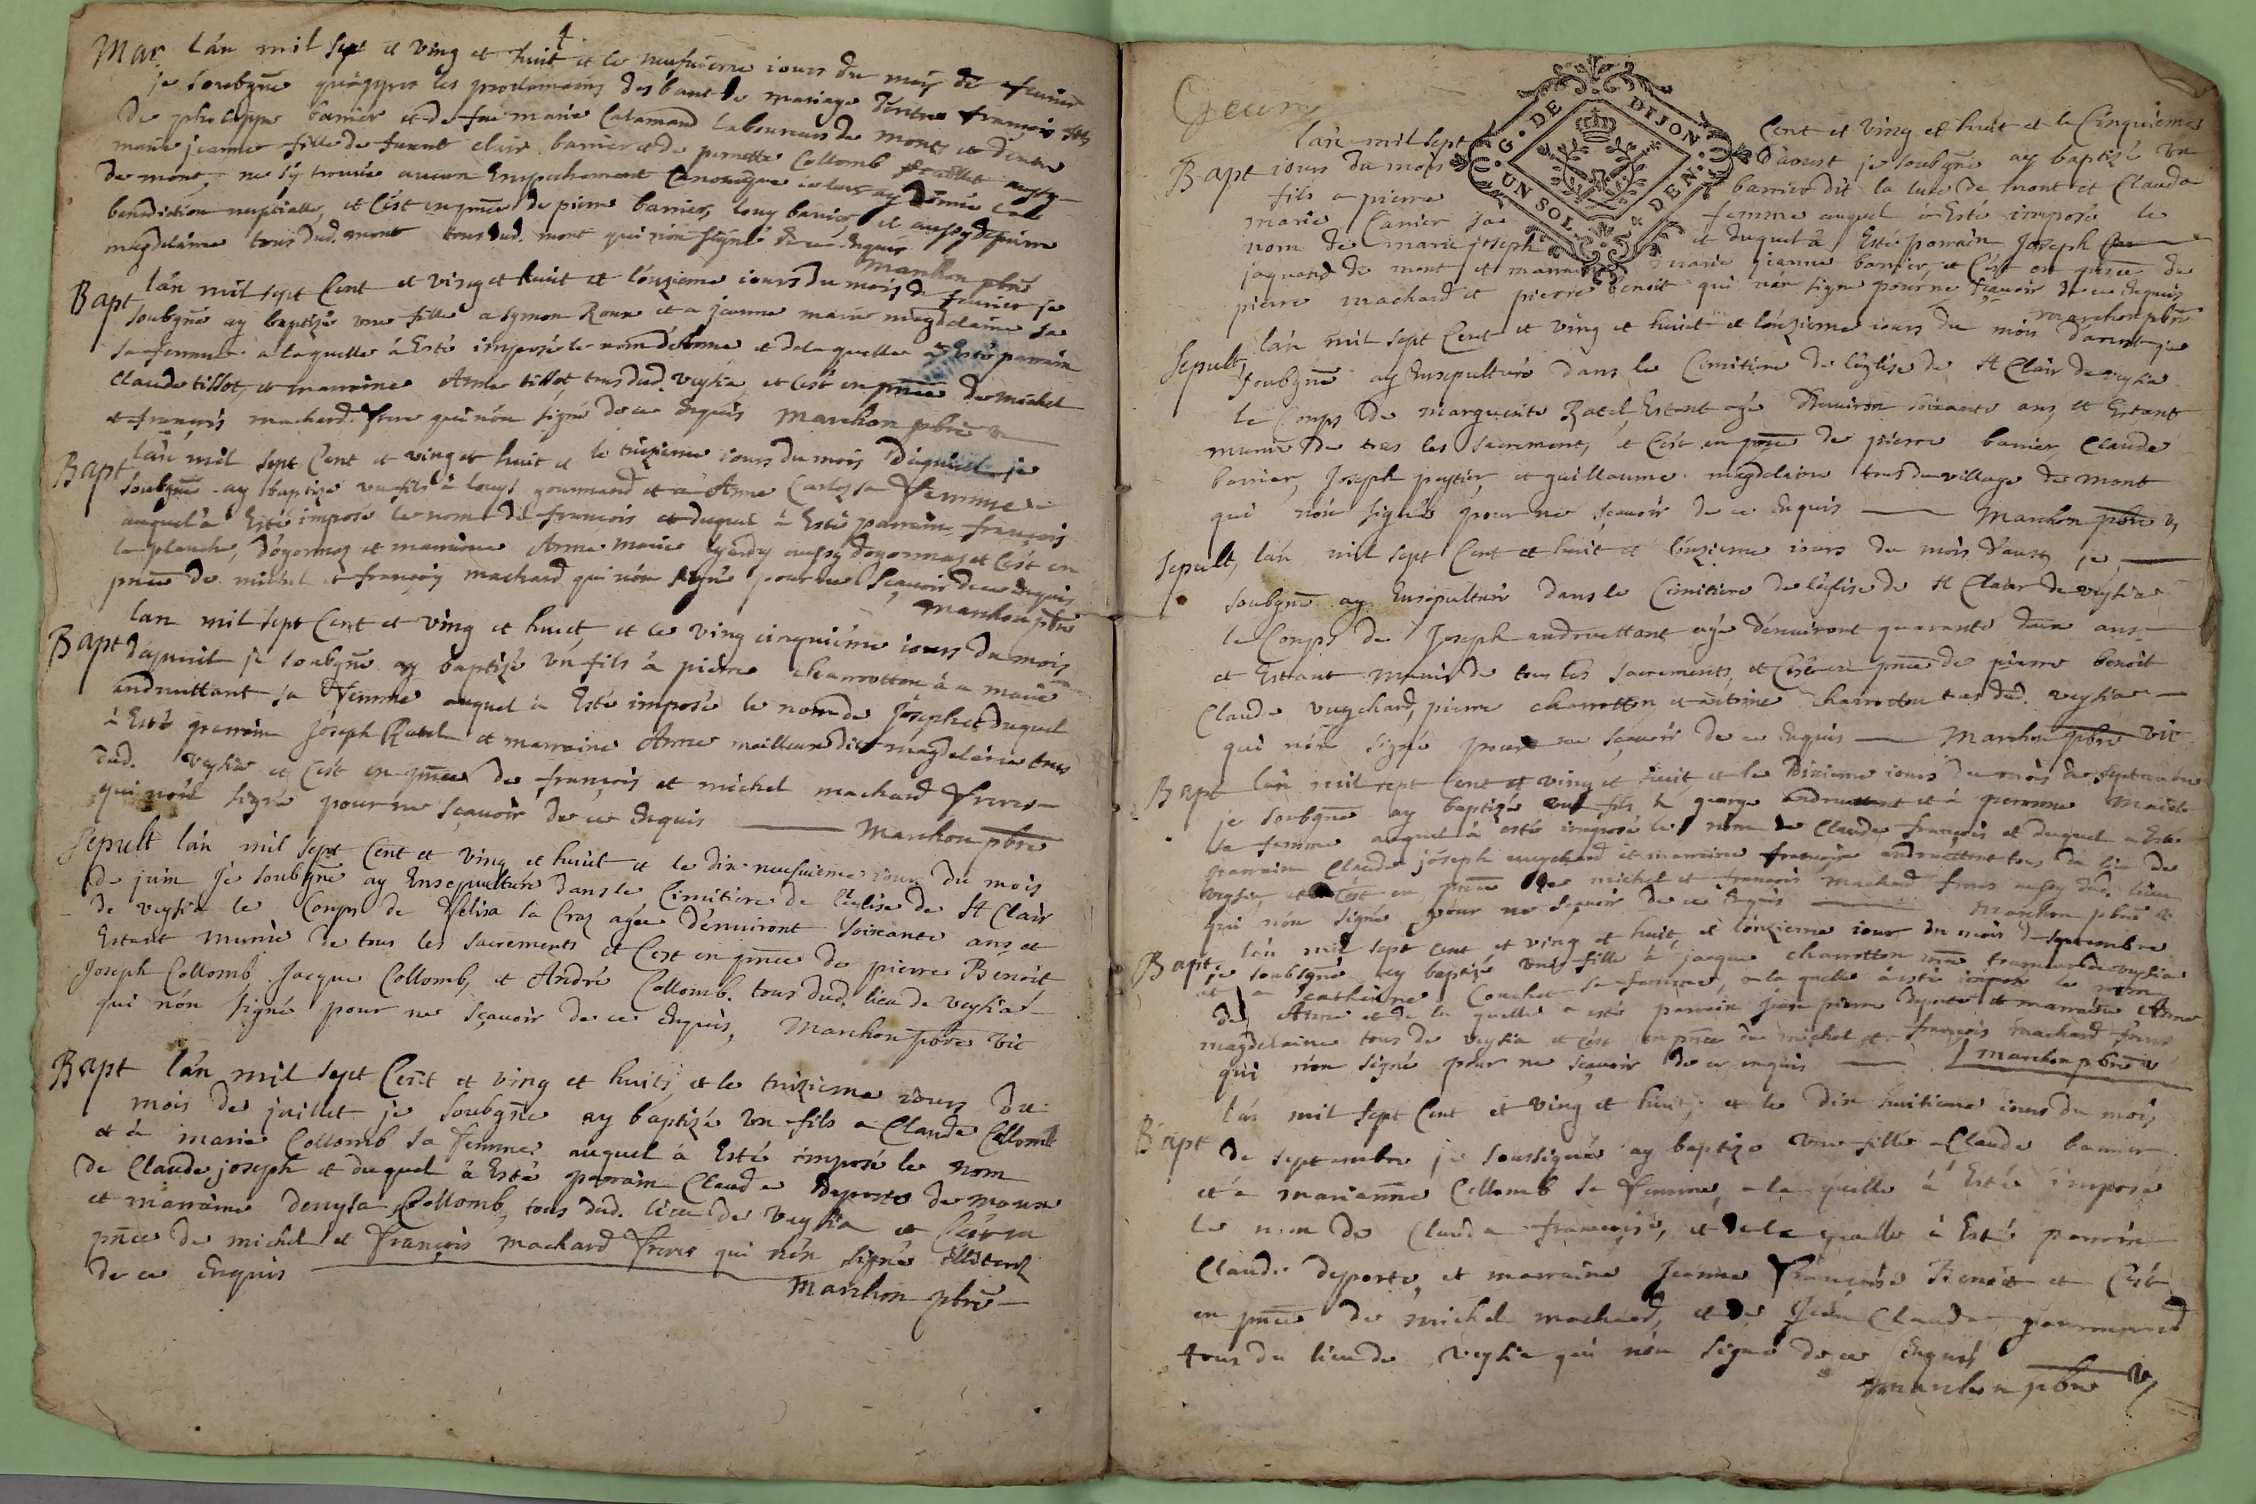 Mar lán mil sept et ving et huit et le neufuieme iours du mois de feurier
je soubgne quáppres les proclamãons des bant de mariage dentre francois fils
de philippe barrier et de feu marie Calamand laboureurs de mont et dentre
marie jeanne fille de furent clair barrier et de pernette Collomb
de mont, ne sy trouué aucun Empechement Canonique ie leurs ay donné la
benediction nuptialle, et cést en pñce de pierre barrier, louy barrier, et aussy de pierre
magdelaine tous dud. mont qui nón signé de ce Enquis
Marchon pbre
Bapt lán mil sept Cent et ving et huit et lónzieme iours du mois de feurier je
soubgné ay baptizé vne fille a symon Roux et a jeanne marie magdelaine sa
sa femme a laquelle à Esté imposé le nom dé Anne et de laquelle à Esté parrain
Claude tillot, et marraine Anne tillot tous dud. veyzia et cést en pñce de michel
et françois machard frere qui nón signé de ce Enquis Marchon pbre v
Bapt lán mil sept Cent et ving et huit et le treizieme iours du mois dápuril je
soubgné ay baptizé vn fils à louys gourmand et à Anne Carlez sa femme
auquel à Esté imposé le nom de francois et duquel à Esté parrain francois
la planche, dóyonnaz et marraine Anne Marie gardy aussy dóyonnaz et Cést en
pñce de michel et françois machard qui nón signé pour ne sçauoir de ce Enquis
Marchon pbre
lan mil sept Cent et ving et huict, et le ving cinquiéme iours du mois
Bapt dápuril je soubgné ay baptizé vn fils à pierre charrotton à a marie
andruettant sa femme auquel à Esté imposé le nom de Joseph et duquel
à Esté parrain Joseph Ratel et marraine Anne mailleur dit magdelaine tous
dud. veyzia et Cést en pñce de françois et michel machard freres
qui nón signé pour ne sçauoir de ce Enquis Marchon pbre
Sepult lán mil sept Cent et ving et huict et le dix neufuieme iours du mois
de juin Je soubgné ay Ensepulturé dans le Cimitiere de l'église de St Clair
de veyzia le Corps de felisa la Craz agée dénuiront soixante ans et
Estant Munie de tous les sacrements et Cést en pñce de pierre Benoit
Joseph Collomb, Jacque Collomb, et André Collomb. tous dud. lieu de veyzia
qui nón signé pour ne sçauoir de ce Enquis, Marchon pbre vic
Bapt lán mil sept Cent et ving et huit, et le treizieme iours du
mois de juillet je soubgne ay baptizé vn fils a Claude Collomb
et à marie Collomb sa femme auquel à Esté imposé le nom
de Claude joseph et duquel à Esté parrain Claude deporte de moux
et marraine denysa Collomb, tous dud. lieu de veyzia et Cést en
pñce de michel et françois machard freres qui nón signé illiterez
de ce Enquis
Marchon pbre
G. DE DIJON
UN SOL DEN.
lán mil sept Cent et ving et huit et le Cinquieme
Bapt iours du mois dáoust je soubgné ay baptizé vn
fils a pierre barrier dit la luke de mont et Claude
marie Carrier sa femme auquel à Esté imposé le
nom de marie joseph et duquel à Esté parrain Joseph
jaquand de mont et marraine marie jeanne barrier, et Cést en pñce de
pierre machard et pierre benoit qui nón signé pour ne sçauoir de ce Enquis
Marchon pbre
Sepult, lán mil sept Cent et ving et huict et lónzieme iours du mois dáoust je
soubgné ay Ensepulturé dans le Cimitiere de l'église de St Clair de veyzia
le Corps de marguerite Ratel, Estant agé dénuiron soixante ans et Estant
munie de tous les sacrement, et Cést en pñce de pierre barrier, Claude
barrier, Joseph peytier, et guillaume magdelaine tous du village de mont
qui nón signés pour ne sçauoir de ce Enquis Marchon pbre v
Sepult, lán mil sept Cent et huit et lónzieme iours du mois dáoust je
soubgné ay Ensepulturé dans le Cimitiere de l'église de St Clair de veyzia
le Corps de Joseph andruettant agé dénuiront quarante deux ans
et Estant Munis de tous les sacrements, et Cést en pñce de pierre benoit
Claude vugchard, pierre charrotton et antoine charrotton tous dud. veyzia
qui nón signé pour ne sçauoir de ce Enquis Marchon pbre vic
Bapt lán mil sept Cent et ving et huit, et le dixieme iours du mois de septembre
je soubgné ay baptizé vnt fils à george andruettant et à peronne Marielle
sa femme auquel à esté imposé le nom de Claude françois et duquel a Esté
parrain Claude jóseph vugchard et marraine françoise andruettant tous du lieu de
veyzia, et Cést en pñce de michel et françois machard freres aussy dud. lieu
qui nón signé pour ne sçauoir de ce Enquis Marchon pbre v
Bapt. lán mil sept cent et ving et huit et lónzieme iour du mois de septembre
je soubsigné ay baptizé vne fille à jacque charrotton de veyzia
et a Catherine Couchet sa femme, a la quelle à esté imposé le nom
de Anne et de la quelle a esté parrain Jean pierre deporte et marraine Anne
magdelaine tous de veyzia et cést en pñce de michel et françois machard freres
qui nón signé pour ne sçauoir de ce enquis Marchon pbre v
lán mil sept Cent et ving et huit, et le dix huitieme iours du mois
Bapt de septembre je soussigné ay baptizé vne fille a Claude barrier
et à marianne Collomb sa femme, a la quelle à Esté imposé
le nom de Claude françoise, et de la quelle à Esté parrain
Claude deporte, et marraine Jeanne françoise Benoit et Cést
en pñce de michel machard, et de Jean Claude gourmand
tous du lieu de veyzia qui nón signé de ce Enquis
Marchon pbre v